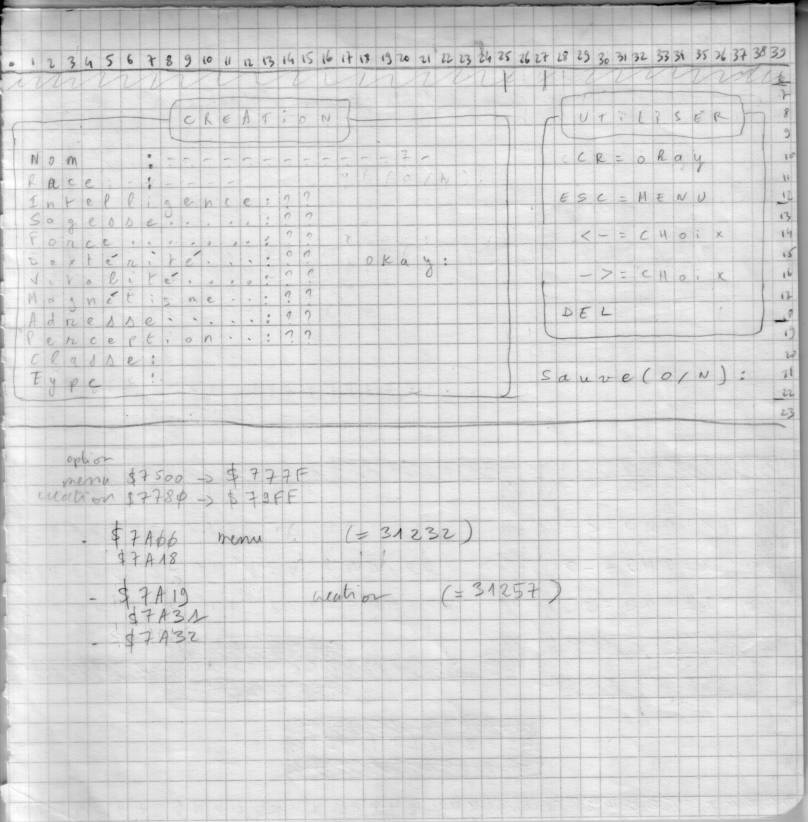 0 1 2 3 4 5 6 7 8 9 10 11 12 13 14 15 16 17 18 19 20 21 22 23 24 25 26 27 28 29 30 31 32 33 34 35 36 37 38 39
6
7
CREATION UTILISER 8
9
Nom : - - - - - - - - - - - - 7 - CR = OKay 10
Race : - - - - - (O/N) 11
Intelligence : ? ? ESC = MENU 12
Sagesse . . . . : ? ? 13
Force . . . . . . : ? ? <- = CHoix 14
Dextérité . . . : ? ? okay : 15
Virilité . . . . : ? ? -> = CHoix 16
Magnétisme . . : ? ? 17
Adresse . . . . : ? ? DEL 18
Perception . . : ? ? 19
Classe : 20
Type : Sauve (O/N) : 21
22
23
option
menu $7500 -> $777F
creation $7780 -> $79FF
- $7A00 menu (= 31232)
$7A18
- $7A19 creation (= 31257)
$7A31
- $7A32